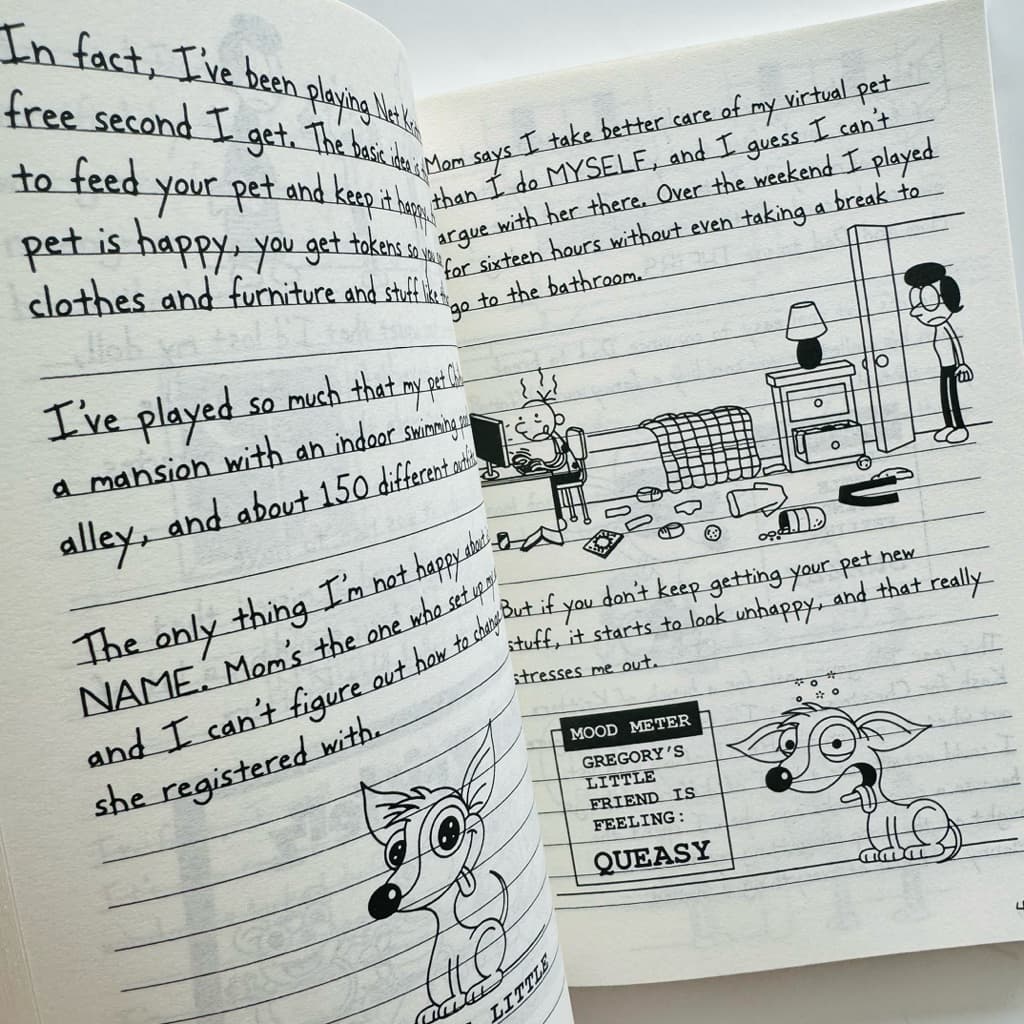 In fact, I've been playing Net
free second I get. The basic idea is
to feed your pet and keep it happy.
pet is happy, you get tokens so
clothes and furniture and stuff like
I've played so much that my pet
a mansion with an indoor swimming
alley, and about 150 different
The only thing I'm not happy about
NAME. Mom's the one who set up
and I can't figure out how to change
she registered with.
LITTLE
Mom says I take better care of my virtual pet
than I do MYSELF, and I guess I can't
argue with her there. Over the weekend I played
for sixteen hours without even taking a break to
go to the bathroom.
But if you don't keep getting your pet new
stuff, it starts to look unhappy, and that really
stresses me out.
MOOD METER
GREGORY'S
LITTLE
FRIEND IS
FEELING:
QUEASY